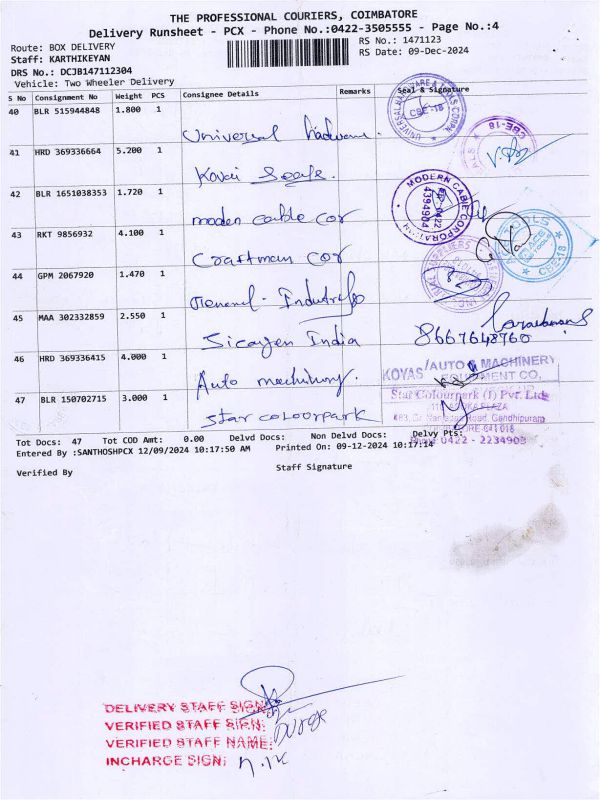 THE PROFESSIONAL COURIERS, COIMBATORE
Delivery Runsheet - PCX - Phone No.:0422-3505555 - Page No.:4
Route: BOX DELIVERY
RS No.: 1471123
Staff: KARTHIKEYAN
RS Date: 09-Dec-2024
DRS No.: DCJB147112304
Vehicle: Two Wheeler Delivery
S No Consignment No Weight PCS Consignee Details Remarks Seal & Signature
40 BLR 515944848 1.800 1
Universal hardware.
CBE-18
41 HRD 369336664 5.200 1
Kovai Seals.
CBE-18
42 BLR 1651038353 1.720 1
moden cable cor
MODERN CABLE CORPORATION
0422
4394904
43 RKT 9856932 4.100 1
Craftman cor
CBE-18
44 GPM 2067920 1.470 1
45 MAA 302332859 2.550 1
Sicagen India
8667648760
46 HRD 369336415 4.000 1
Auto machinery.
KOYAS/AUTO & MACHINERY
EQUIPMENT CO,
47 BLR 150702715 3.000 1
Star colourpark
Star Colourpark (I) Pvt. Ltd
PLAZA
Gandhipuram
Phone 0422 - 2234903
Tot Docs: 47 Tot COD Amt: 0.00 Delvd Docs: Non Delvd Docs: Delvy Pts:
Entered By :SANTHOSHPCX 12/09/2024 10:17:50 AM Printed On: 09-12-2024 10:17:14
Verified By
Staff Signature
DELIVERY STAFF SIGN:
VERIFIED STAFF SIGN:
VERIFIED STAFF NAME:
INCHARGE SIGN: